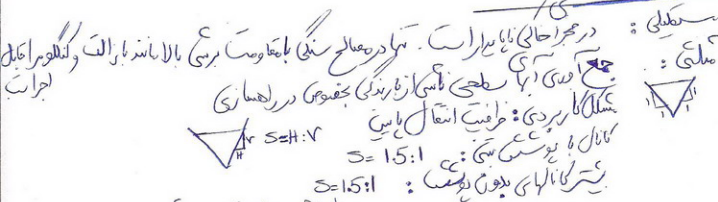 مستطیلی: در مجرا خالی ناپایدار است. تنها در مصالح سنگی با مقاومت برشی بالا مانند بازالت و کنگلومرا قابل اجراست
مثلثی: جمع آوری آبهای سطحی ناشی از بارندگی بخصوص در راهسازی
مشکل کاربردی: ظرفیت انتقال پایین
S=H:V
V
H
1 1 1 1
کانال با پوشش بتنی: S=1.5:1
بیشتر کانالهای بدون پوشش: S=1.5:1